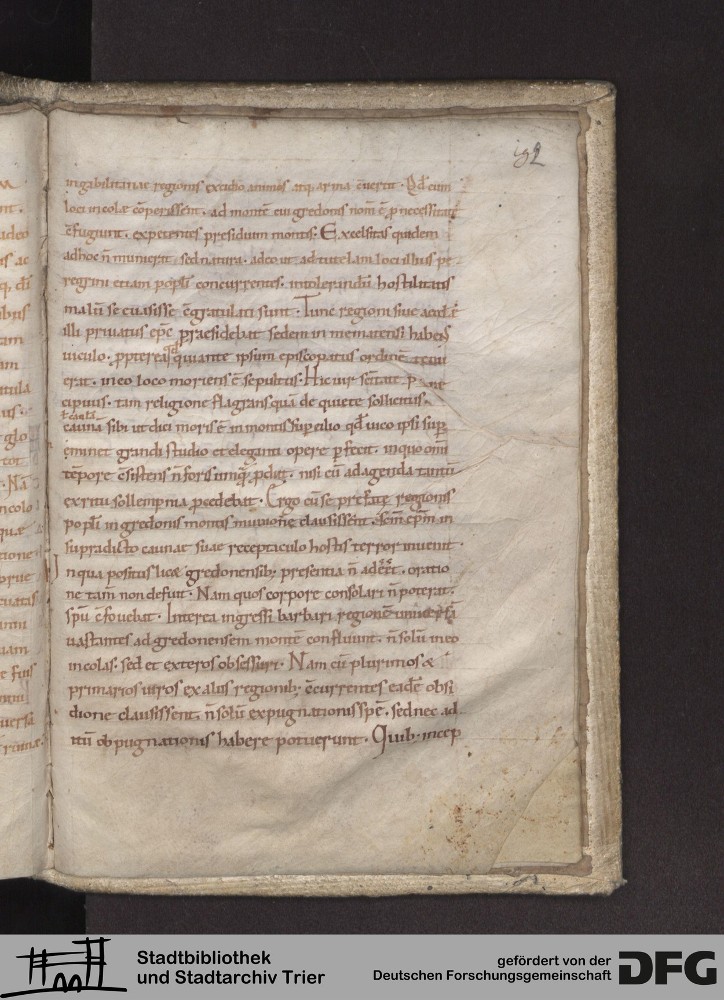 192
in gabilitanae regionis excidio animos atq; arma c̄uertit. Qd̄ cum
loci incolae cōperissent. ad montē cui gredonis nom̄ ē p necessitate
c̄fugiunt. expetentes presidium montis; Excelsitas quidem
adhoc n̄ munierit sed natura. adeo ut ad tutelam loci illius pe
regrini etiam popli concurrentes. intolerandū hostilitatis
malū se euasisse c̄gratulati sunt. Tunc regioni siue aecclę
illi priuatus ep̄c praesidebat sedem in mematensi habens
uiculo. ppterea qd quiante ipsum episcopatus ordinē
erat. in eo loco moriens ē sepultus. Hic uir
cipuus. tam religione flagrans quā de quiete sollicitus.
cauna sibi ut dici moris ē in montis supcilio qd̄ uico ipsi sup
eminet grandi studio et eleganti opere pfecit. in quo om̄i
tēpore c̄sistens n̄ foris umq; pdiit. nisi cū ad agenda tantū
exitu sollempnia pcedebat. Ergo cū se regionis
popli in gredonis montis munitionē clausissent. sc̄m ep̄m in
supradicto caunae suae receptaculo hostis terror inuenit.
In qua positus licæ gredonensib; presentia n̄ adeēt. oratio
ne tam̄ non defuit. Nam quos corpore consolari n̄ poterat.
sp̄u c̄fouebat. Interea ingressi barbari regionē uniuersā
uastantes ad gredonensem montē confluunt. n̄ solū in eo
incolas. sed et exteros obsessuri. Nam cū plurimos &
primarios uiros ex aliis regionib; c̄currentes eadē obsi
dione clausissent. n̄ solū expugnationis spē. sed nec ad
itū obpugnationis habere potuerunt. Quib. incep
Stadtbibliothek
und Stadtarchiv Trier
gefördert von der
Deutschen Forschungsgemeinschaft
DFG